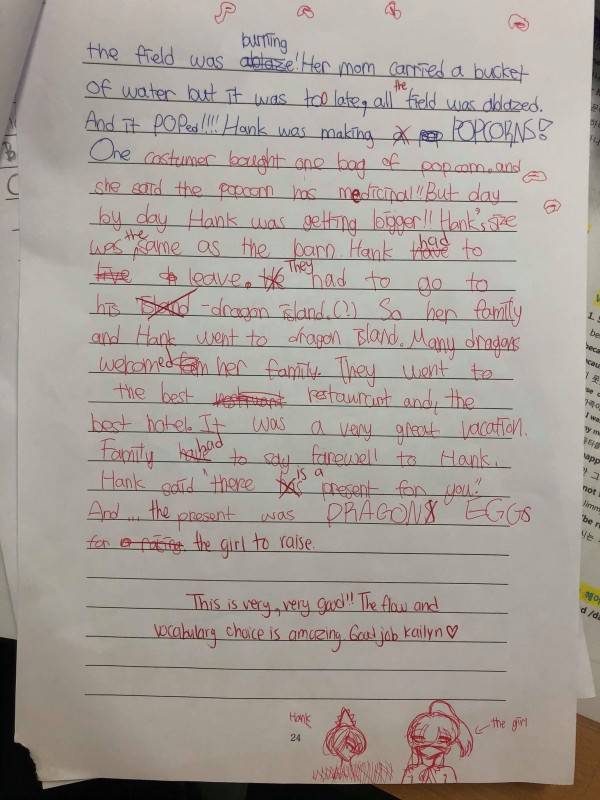 burning
the field was ablaze! Her mom carried a bucket
of water but it was too late, all the field was ablazed.
And it POPed!!!! Hank was making a POPCORNS!
One costumer bought one bag of popcorn. and
she said the popcorn has medicinal!! But day
by day Hank was getting bigger!! Hank's size
was the same as the barn. Hank have had to
live leave. They had to go to
his island -dragon island.(?) So her family
and Hank went to dragon island. Many dragons
welcomed her family. They went to
the best restaurant restaurant and, the
best hotel. It was a very great vacation.
Family have had to say farewell to Hank.
Hank said "there is a present for you."
And... the present was DRAGONS EGGS
for the girl to raise.
This is very, very good!! The flow and
vocabulary choice is amazing. Good job Kailyn♡
Hank
the girl
24